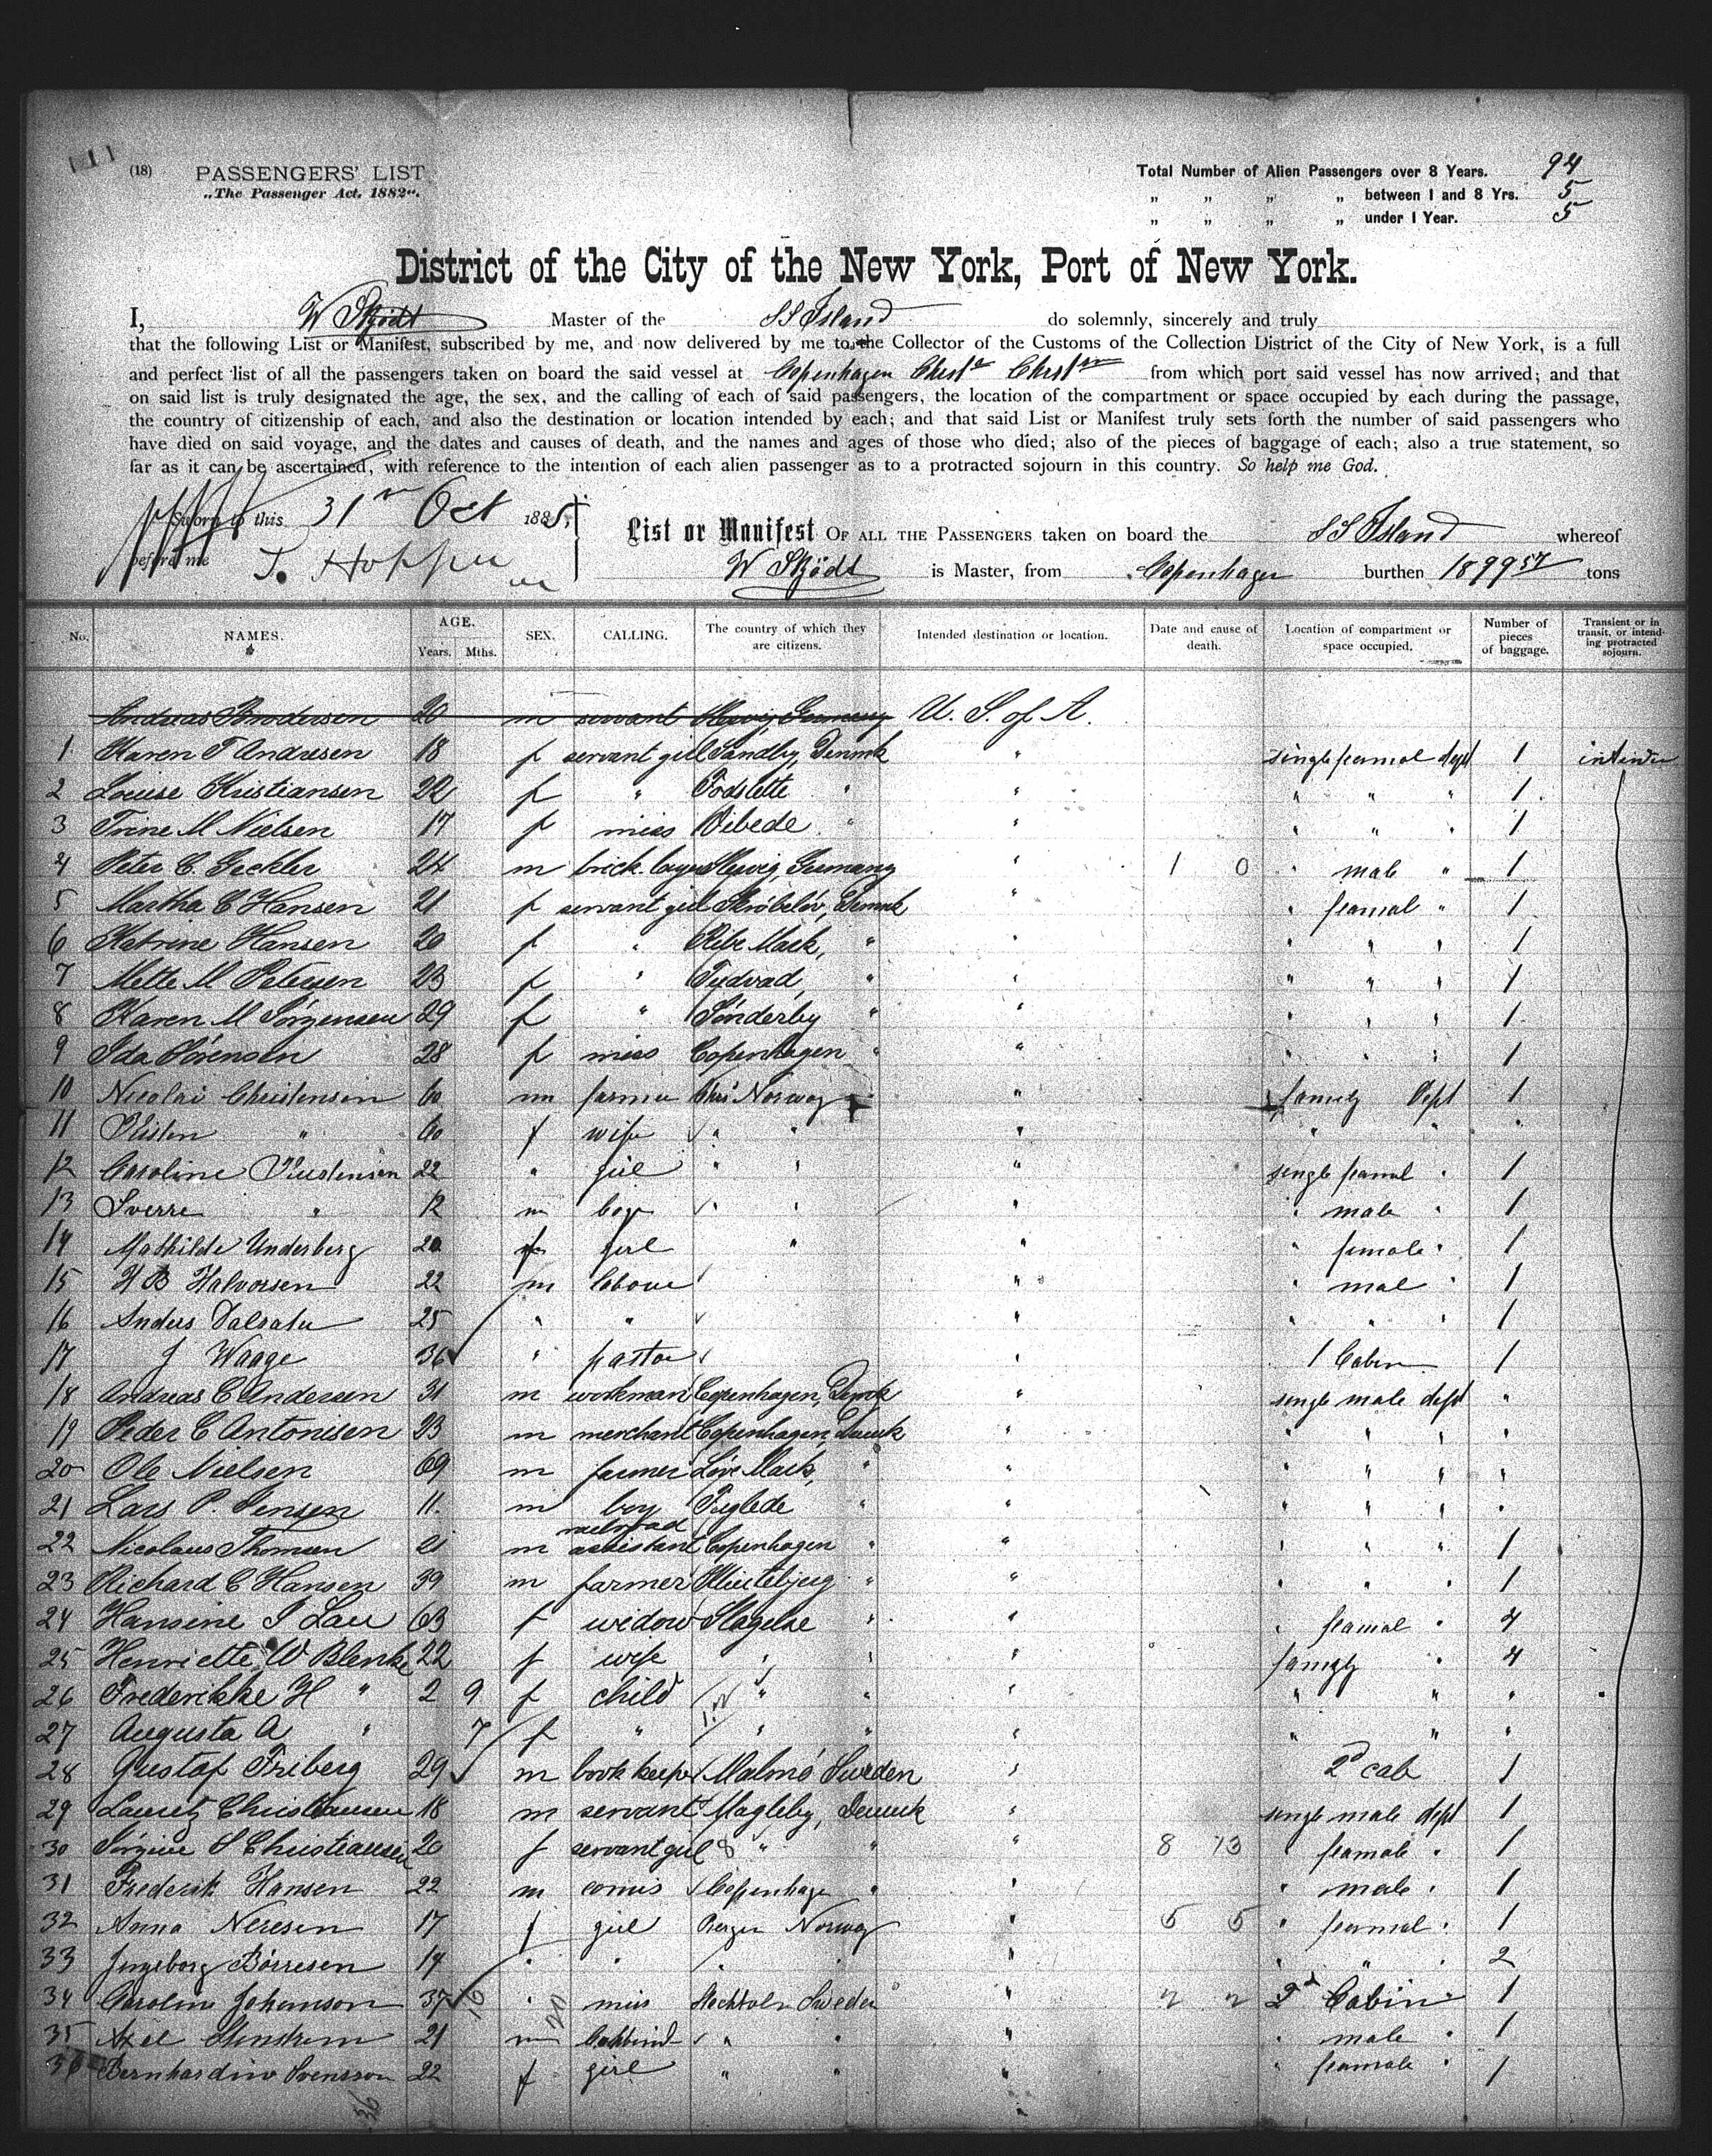 (18) PASSENGERS' LIST
„The Passenger Act, 1882“.
Total Number of Alien Passengers over 8 Years. 94
„ „ „ „ between 1 and 8 Yrs. 5
„ „ „ „ under 1 Year. 5
District of the City of the New York, Port of New York.
I, W Skjödt Master of the SS Island do solemnly, sincerely and truly
that the following List or Manifest, subscribed by me, and now delivered by me to the Collector of the Customs of the Collection District of the City of New York, is a full
and perfect list of all the passengers taken on board the said vessel at Copenhagen from which port said vessel has now arrived; and that
on said list is truly designated the age, the sex, and the calling of each of said passengers, the location of the compartment or space occupied by each during the passage,
the country of citizenship of each, and also the destination or location intended by each; and that said List or Manifest truly sets forth the number of said passengers who
have died on said voyage, and the dates and causes of death, and the names and ages of those who died; also of the pieces of baggage of each; also a true statement, so
far as it can be ascertained, with reference to the intention of each alien passenger as to a protracted sojourn in this country. So help me God.
Sworn to this 31 Oct 1885,
before me
List or Manifest OF ALL THE PASSENGERS taken on board the SS Island whereof
W Skjödt is Master, from Copenhagen burthen 1899 57 tons
No. NAMES. AGE. Years. Mths. SEX. CALLING. The country of which they are citizens. Intended destination or location. Date and cause of death. Location of compartment or space occupied. Number of pieces of baggage. Transient or in transit, or intending protracted sojourn.
Andreas Brodersen 20 m servant Germany U. S. of A.
1 Karen T Andresen 18 f servant girl Sandby, Denmk " single femal dept 1
2 Louise Kristiansen 22 f " " " " " " 1
3 Trine M Nielsen 17 f miss Vibede " " " " " 1
4 Peter C. 24 m Germany " 1 0 " male " 1
5 Martha C Hansen 21 f servant girl Denmk " " feamal " 1
6 Katrine Hansen 20 f " Ribe Mark, " " " " " 1
7 Mette M Petersen 23 f " " " " " " 1
8 Karen M Jörgensen 29 f " Sönderby " " " " " 1
9 Ida Sörensen 28 f miss Copenhagen " " " " " 1
10 Nicolai Christensen 60 m farmer Norway " family Dept 1
11 " 60 f wife " " " " " "
12 Caroline 22 " girl " " " single feamal " 1
13 Sverre " 12 m boy " " " " male " 1
14 Mathilde Underberg 20 f girl " " " female " 1
15 H B Halvorsen 22 m labour " " mal " 1
16 Anders 25 " " " " " " 1
17 J Waage 36 " pastor " 1 Cabin 1
18 Andreas C Andersen 31 m workman Copenhagen, Denmk " single male dept "
19 Peder C Antonisen 23 m merchant Copenhagen, Denmk " " " " "
20 Ole Nielsen 69 m farmer Löve Mark, " " " " " "
21 Lars P. Jensen 11. m boy " " " " " "
22 Nicolaus Thomsen 21 m railroad assistant Copenhagen " " " " " 1
23 Richard C Hansen 39 m farmer " " " " " 1
24 Hansine J Lau 63 f widow Slagelse " " " feamal " 4
25 Henriette W Blenke 22 f wife " " " family " 4
26 Frederikke H " 2 9 f child " " " " " "
27 Augusta A " 7 f " " " " " " "
28 Gustaf Friberg 29 m book keeper Malmö Sweden " 2d cab 1
29 Lauritz Christiansen 18 m servant Magleby, Denmk " single male dept 1
30 Jörgine S Christiansen 20 f servant girl " " " 8 13 " feamale " 1
31 Frederik Hansen 22 m comis Copenhagen " " " male " 1
32 Anna 17 f girl Bergen Norway " 5 5 " feamal " 1
33 Ingeborg Börresen 19 " " " " " " 2
34 Carolina Johanson 37 " miss Stockholm Sweden " 2d Cabin 1
35 Axel 21 m " " " " male " 1
36 Bernhardine Svensson 22 f girl " " " " feamale " 1
36